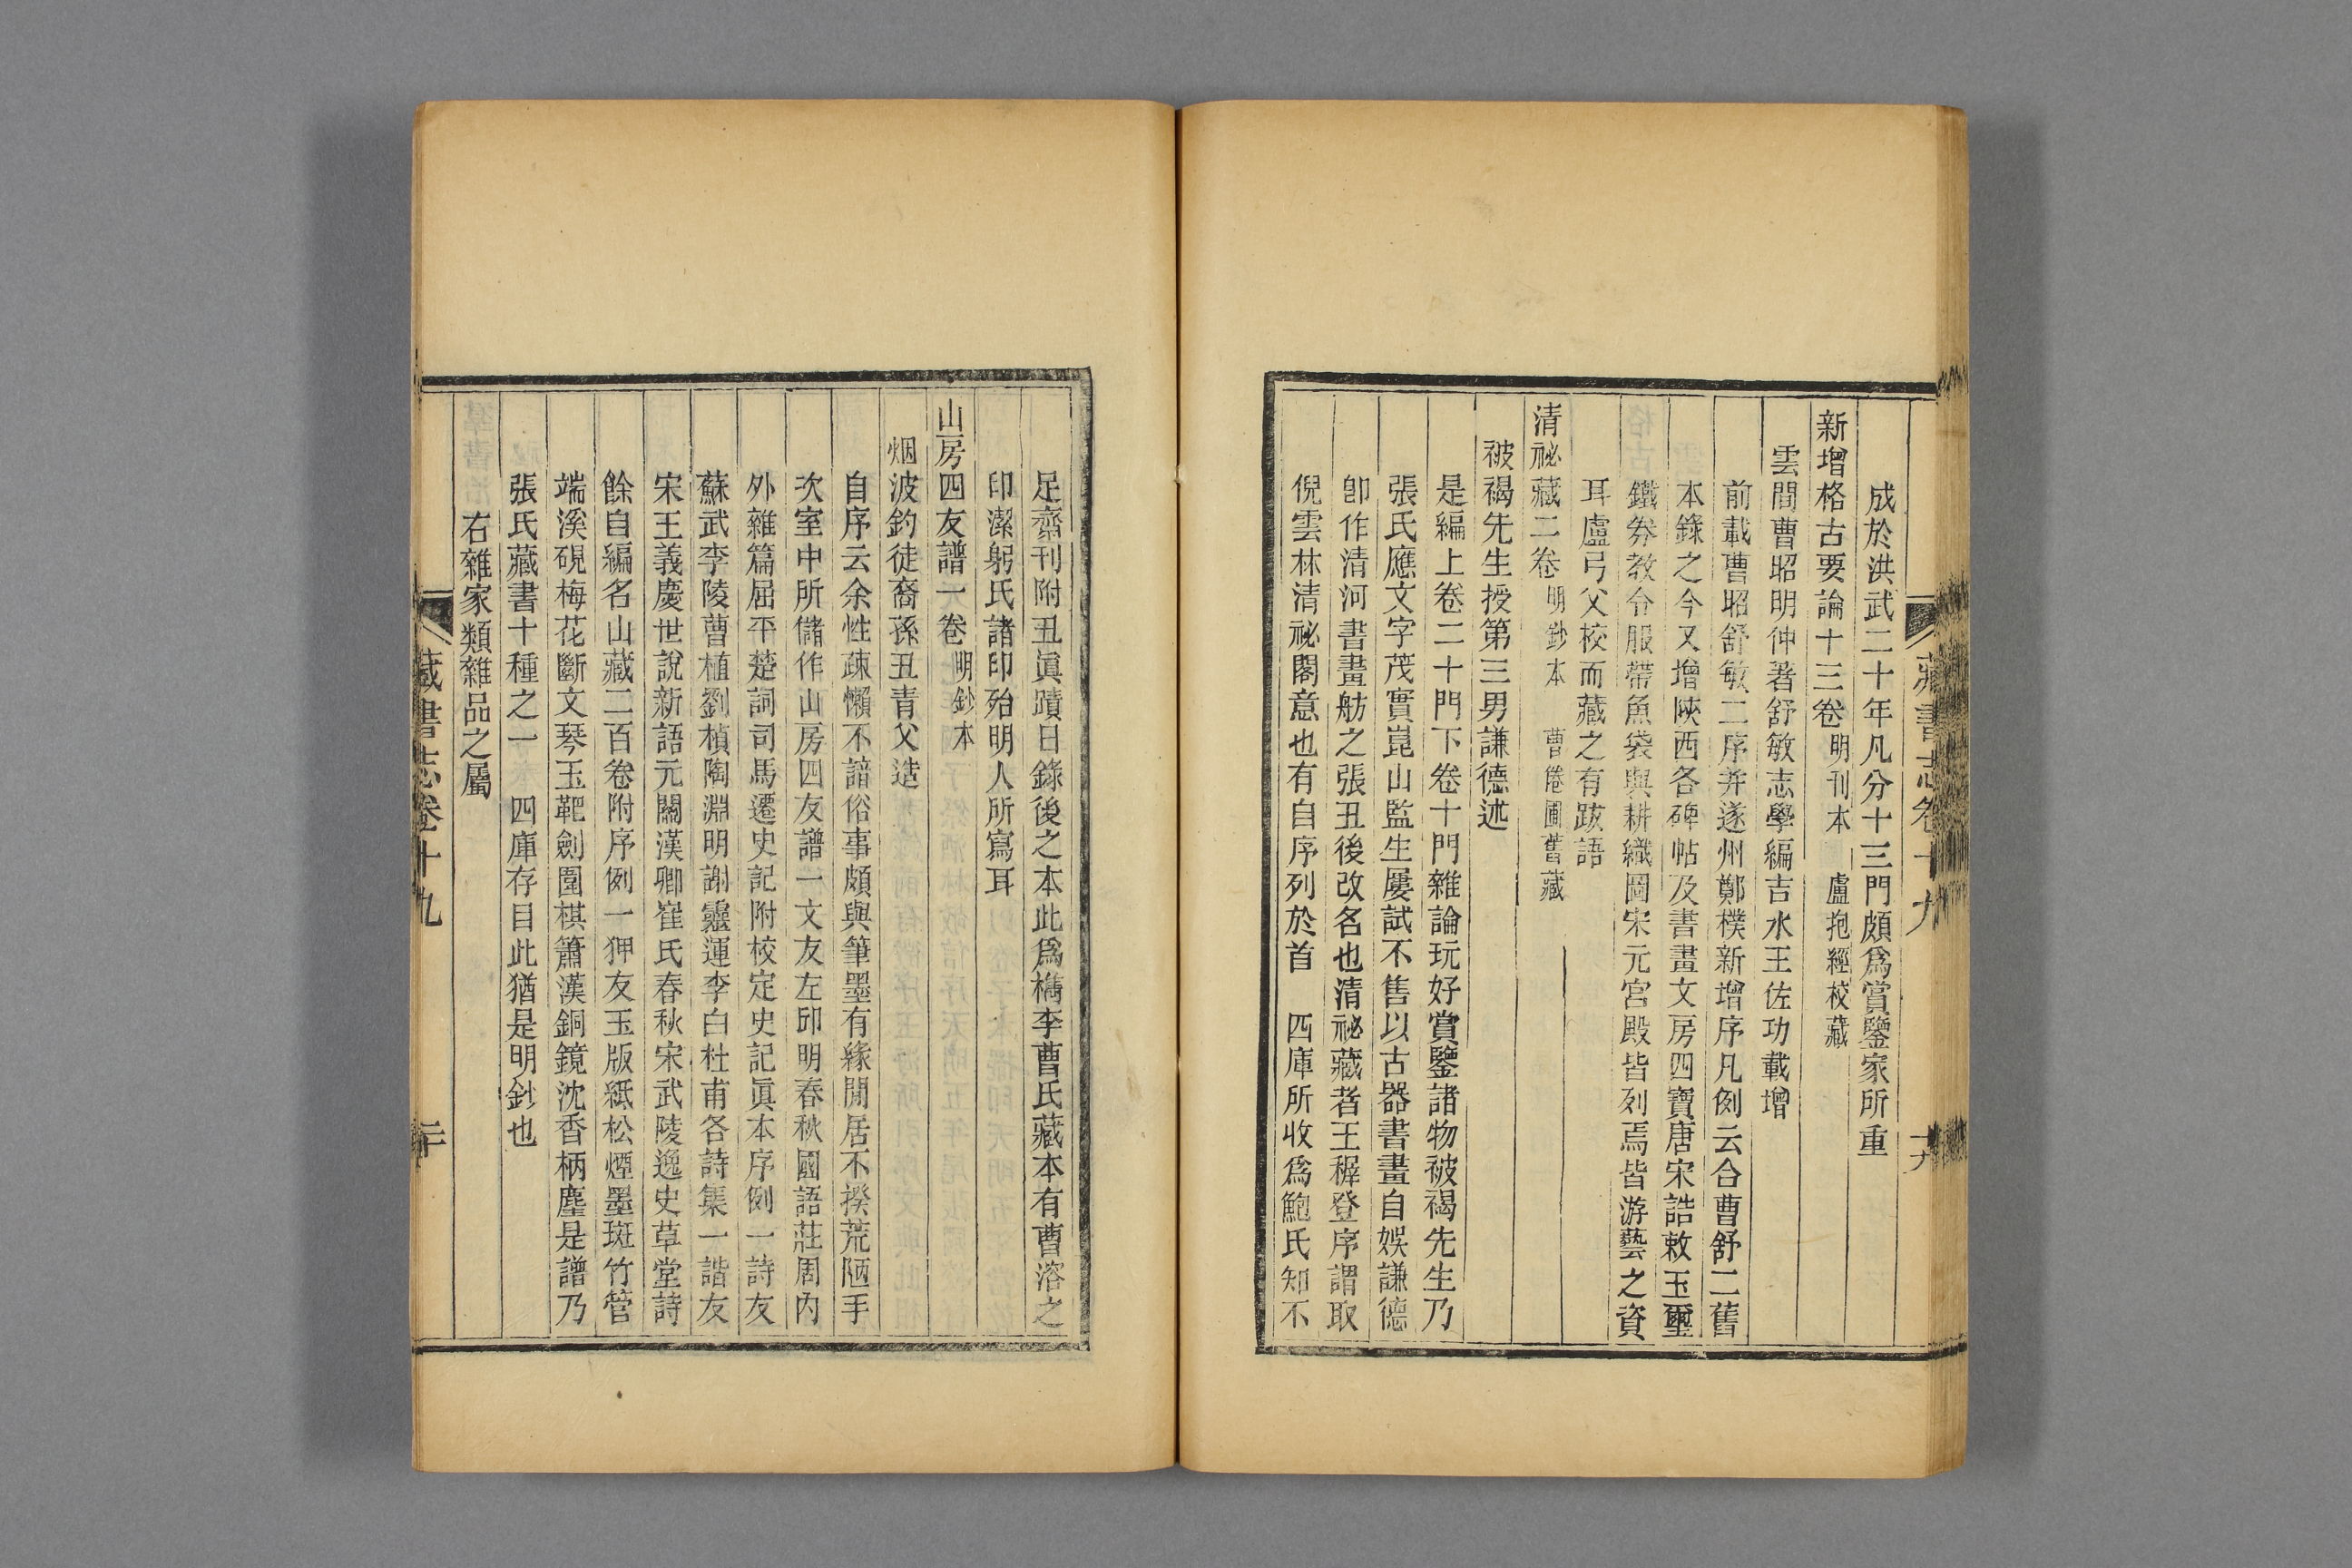 成於洪武二十年凡分十三門頗爲賞鑒家所重
新增格古要論十三卷 明刊本 盧抱經校藏
雲間曹昭明仲著舒敏志學編吉水王佐功載增
前載曹昭舒敏二序并遂州鄭樸新增序凡例云合曹舒二舊
本錄之今又增陝西各碑帖及書畫文房四寶唐宋誥敕玉璽
鐵券教令服帶魚袋與耕織圖宋元宮殿皆列焉皆游藝之資
耳盧弓父校而藏之有跋語
清祕藏二卷 明鈔本 曹倦圃舊藏
被褐先生授第三男謙德述
是編上卷二十門下卷十門雜論玩好賞鑒諸物被褐先生乃
張氏應文字茂實崑山監生屢試不售以古器書畫自娛謙德
卽作清河書畫舫之張丑後改名也清祕藏者王穉登序謂取
倪雲林清祕閣意也有自序列於首 四庫所收爲鮑氏知不
藏書志卷十九
十九
足齋刊附丑眞蹟日錄後之本此爲檇李曹氏藏本有曹溶之
印潔躬氏諸印殆明人所寫耳
山房四友譜一卷 明鈔本
烟波釣徒裔孫丑青父造
自序云余性疎懶不諳俗事頗與筆墨有緣閒居不揆荒陋手
次室中所儲作山房四友譜一文友左邱明春秋國語莊周內
外雜篇屈平楚詞司馬遷史記附校定史記眞本序例一詩友
蘇武李陵曹植劉楨陶淵明謝靈運李白杜甫各詩集一諧友
宋王義慶世說新語元關漢卿崔氏春秋宋武陵逸史草堂詩
餘自編名山藏二百卷附序例一狎友玉版紙松煙墨斑竹管
端溪硯梅花斷文琴玉靶劍圍棋簫漢銅鏡沈香柄麈是譜乃
張氏藏書十種之一 四庫存目此猶是明鈔也
右雜家類雜品之屬
藏書志卷十九
二十